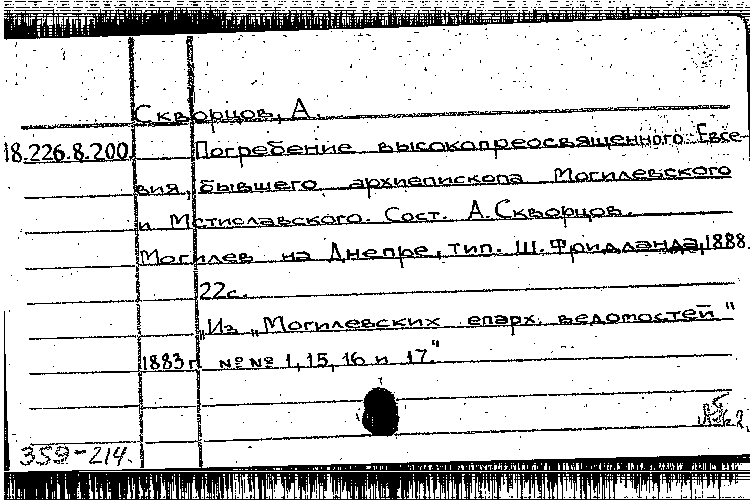 Скворцов, А.
18.226.8.200. Погребение высокопреосвященного Евсе-
вия, бывшего архиепископа Могилевского
и Мстиславского. Сост. А. Скворцов.
Могилев на Днепре, тип. Ш. Фридланда, 1888.
22с.
„Из „Могилевских епарх. ведомостей"
1883 г. №№ 1, 15, 16 и 17."
359-214.